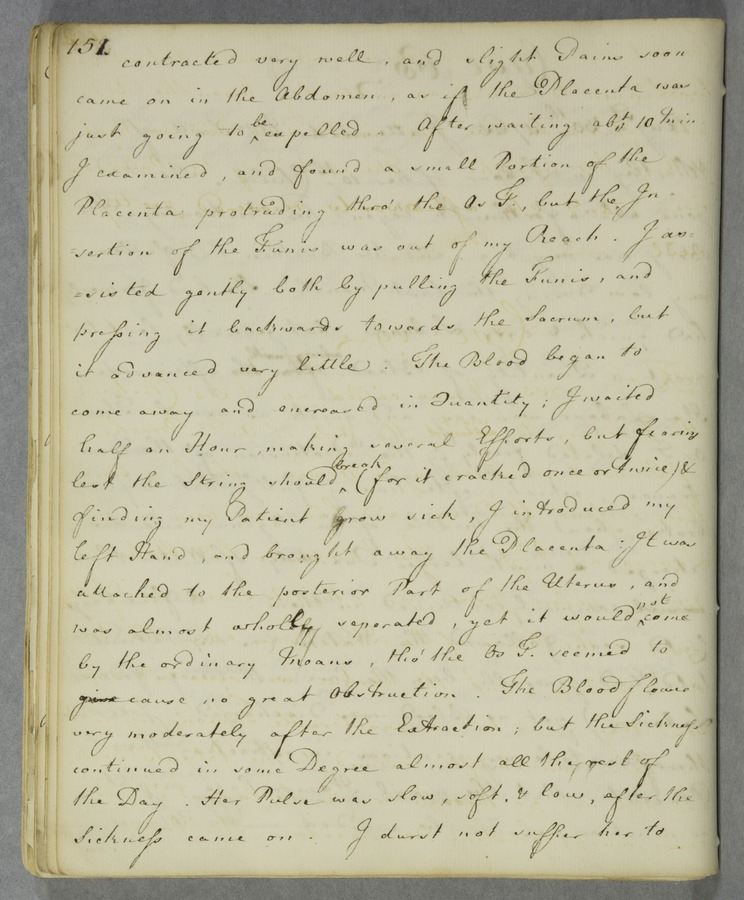 151
contracted very well, and slight Pains soon
came on in the Abdomen, as if the Placenta was
just going to be expelled. After waiting abt. 10 min
I examined, and found a small Portion of the
Placenta protruding thro' the Os T., but the In
=sertion of the Funis was out of my Reach. I as=
=sisted gently both by pulling the Funis, and
pressing it backwards towards the Sacrum, but
it advanced very little. The Blood began to
come away and encreased in Quantity; I waited
half an Hour, making several Efforts, but fearing
lest the String should break (for it cracked once or twice) &
finding my Patient grow sick, I introduced my
left Hand, and brought away the Placenta. It was
attached to the posterior Part of the Uterus, and
was almost wholly seperated, yet it would not come
by the ordinary means, tho' the Os T. seemed to
give cause no great Obstruction. The Blood flowed
very moderately after the Extraction; but the Sickness
continued in some Degree almost all the rest of
the Day. Her Pulse was slow, soft, & low, after the
Sickness came on. I durst not suffer her to